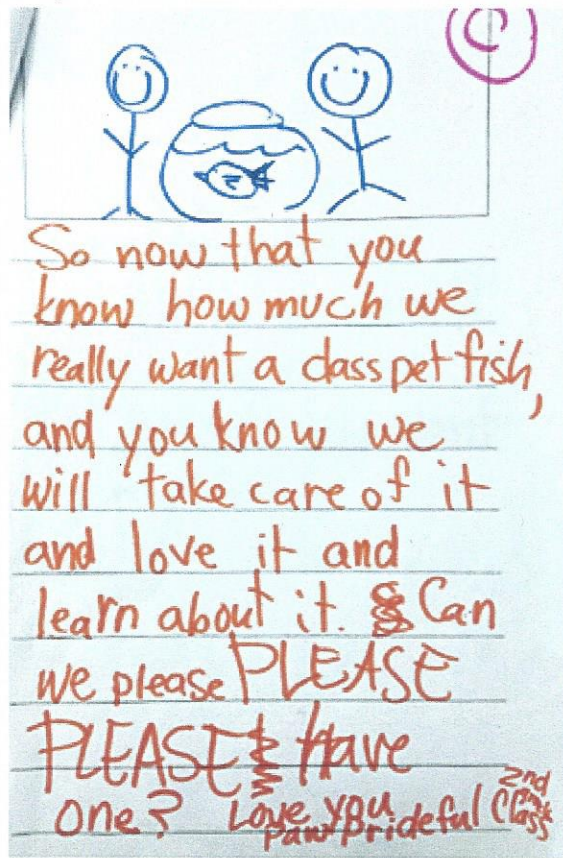 C
So now that you
know how much we
really want a class pet fish,
and you know we
will take care of it
and love it and
learn about it. Can
we please PLEASE
PLEASE Have
one? Love you
Paw Prideful 2nd
Class